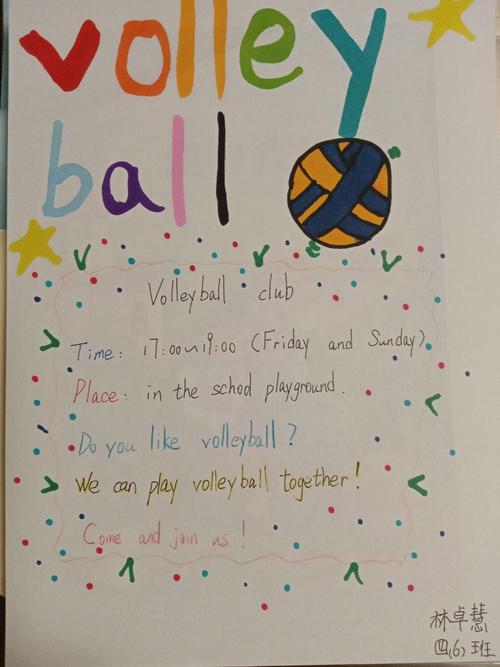 volley
ball
Volleyball club
Time: 17:00~19:00 (Friday and Sunday)
Place: in the school playground.
Do you like volleyball?
We can play volleyball together!
Come and join us!
林卓慧
四(6)班